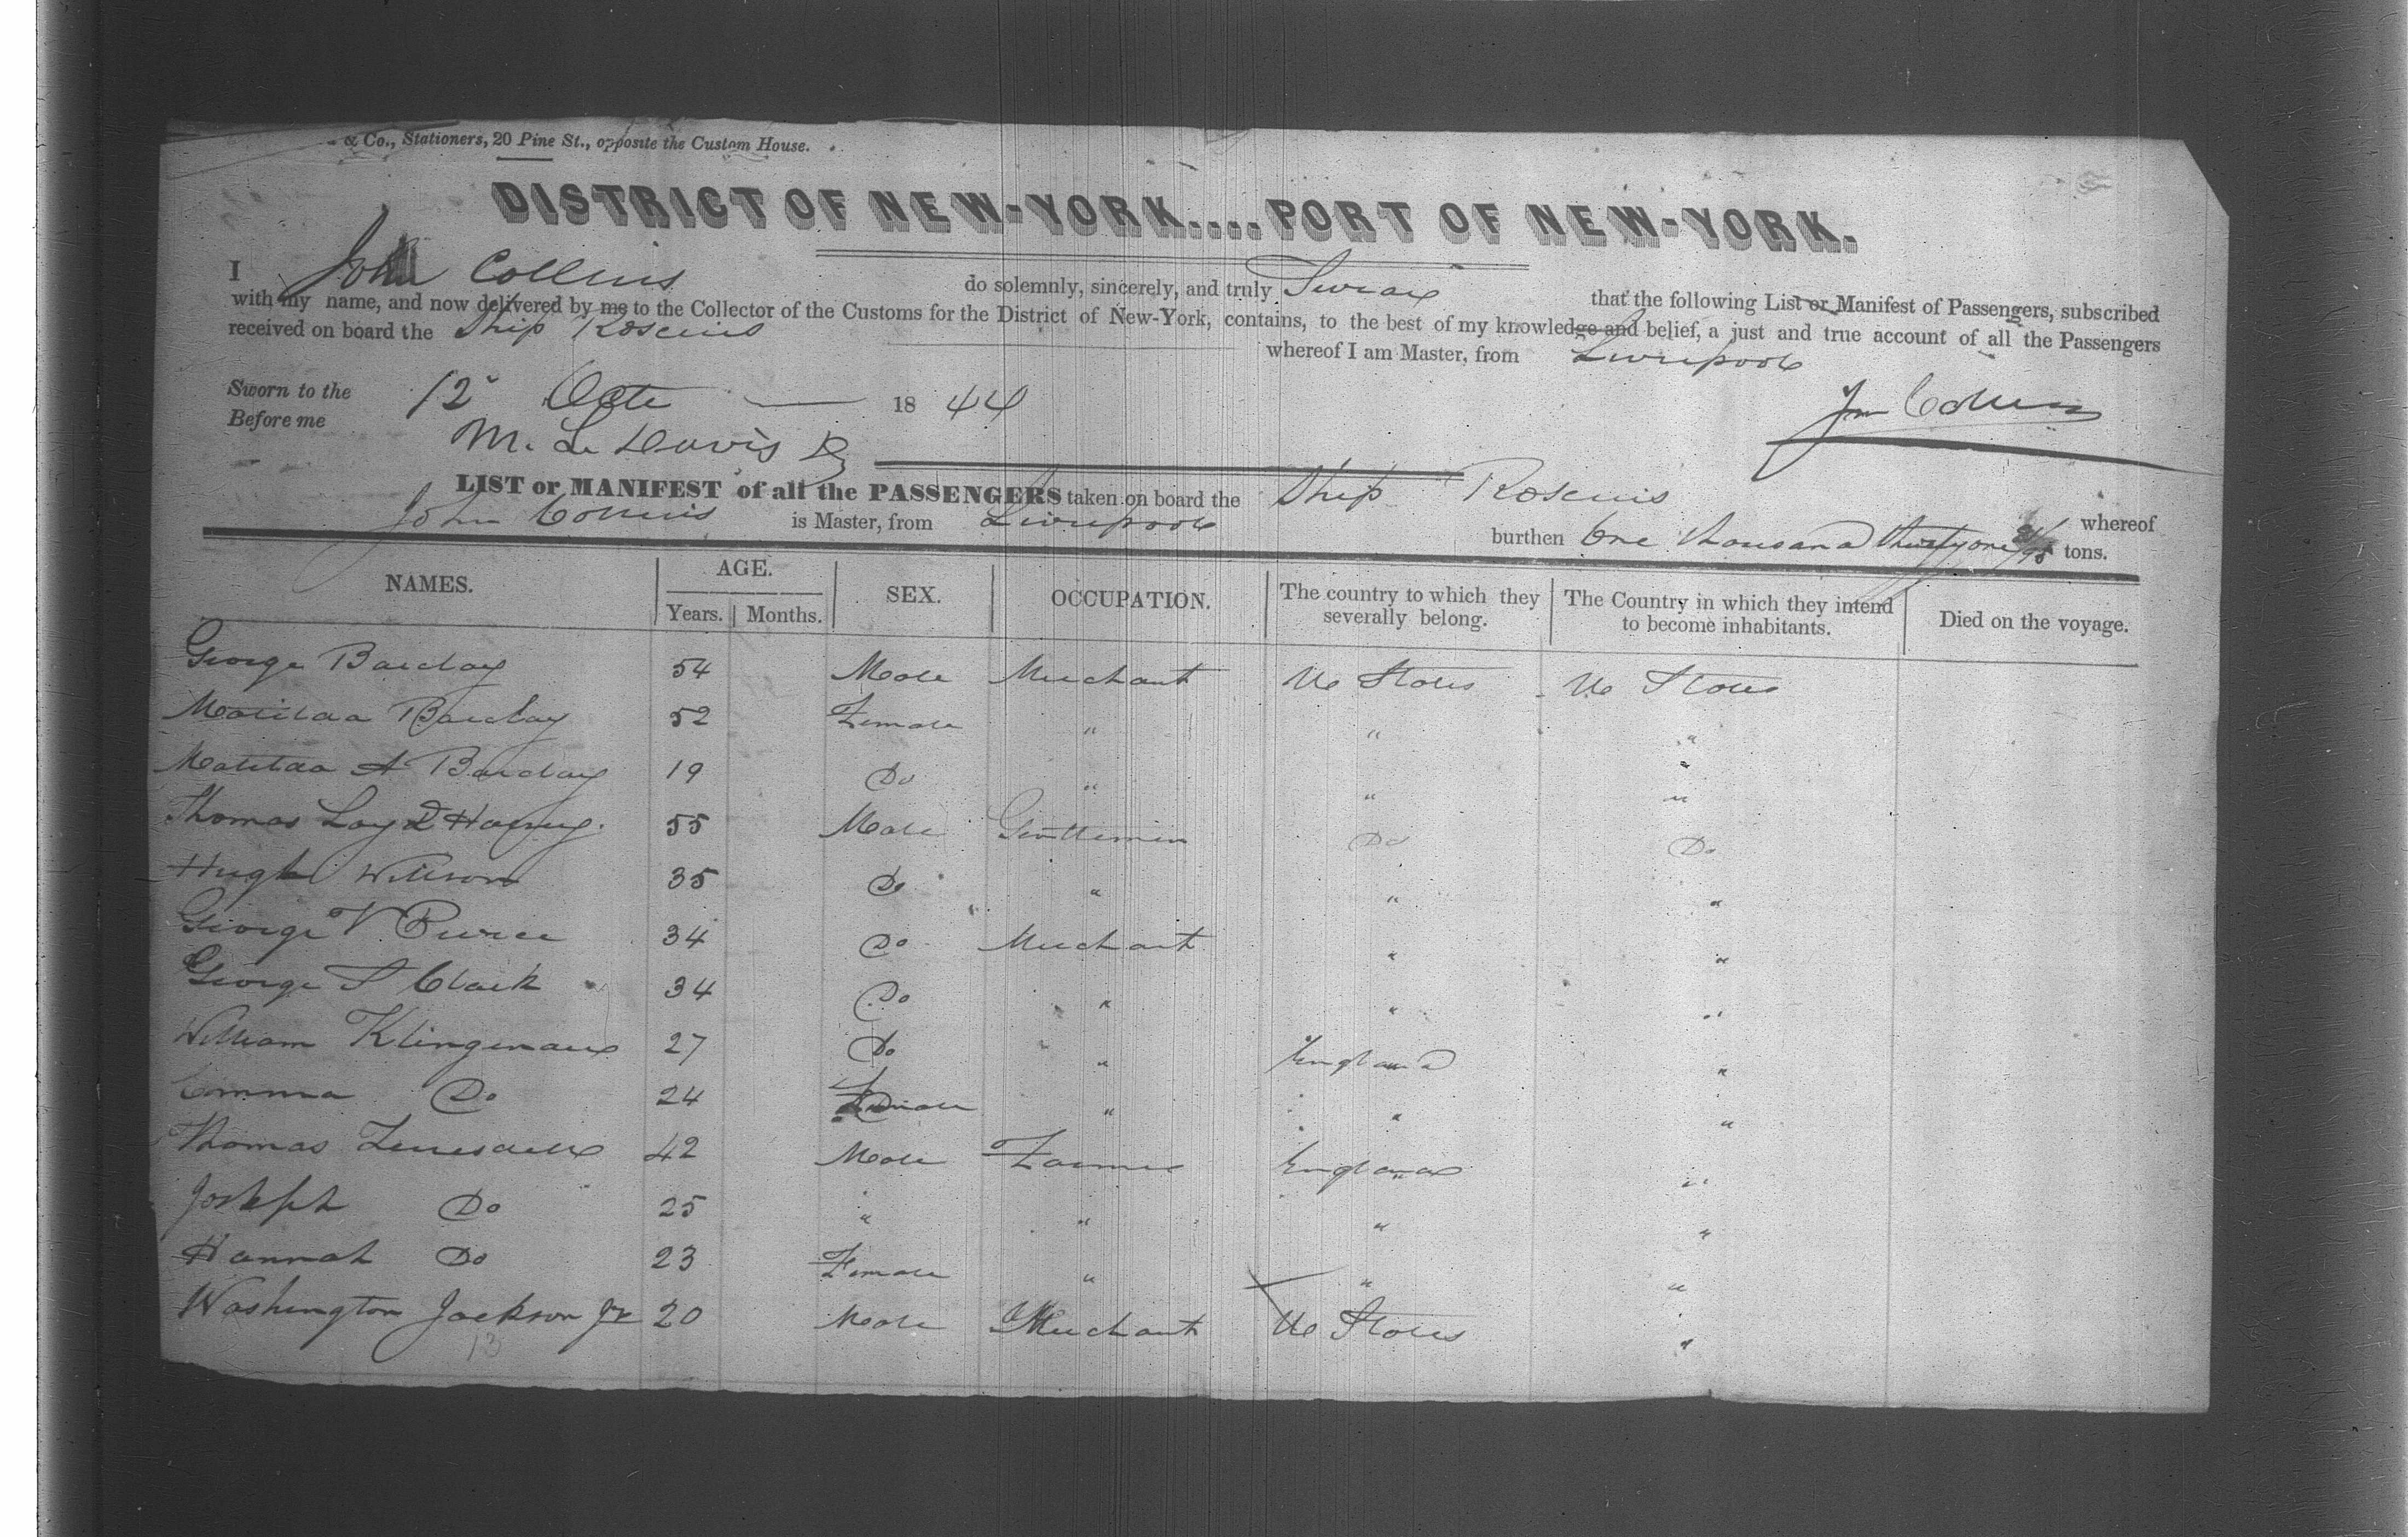 & Co., Stationers, 20 Pine St., opposite the Custom House.
DISTRICT OF NEW-YORK....PORT OF NEW-YORK.
I John Collins do solemnly, sincerely, and truly Swear that the following List or Manifest of Passengers, subscribed
with my name, and now delivered by me to the Collector of the Customs for the District of New-York, contains, to the best of my knowledge and belief, a just and true account of all the Passengers
received on board the Ship Roscius whereof I am Master, from Liverpool
Sworn to the 12 Octr 18 44
Before me M. L. Davis
Jn Collins
LIST or MANIFEST of all the PASSENGERS taken on board the Ship Roscius whereof
John Collins is Master, from Liverpool burthen One thousand thirty one /95 tons.
NAMES. AGE. Years. Months. SEX. OCCUPATION. The country to which they severally belong. The Country in which they intend to become inhabitants. Died on the voyage.
George Barclay 54 Male Merchant U States U States
Matilda Barclay 52 Female " " "
Matilda A Barclay 19 Do " " "
Thomas 55 Male Gentlemen Do Do
Hugh Willson 35 Do " " "
George V Pierce 34 Do Merchant " "
George S Clark 34 Do " " "
William Klingeman 27 Do " England "
Emma Do 24 Female " " "
Thomas 42 Male Farmer England "
Joseph Do 25 " " " "
Hannah Do 23 Female " " "
Washington Jackson Jr 20 Male Merchant U States "
13